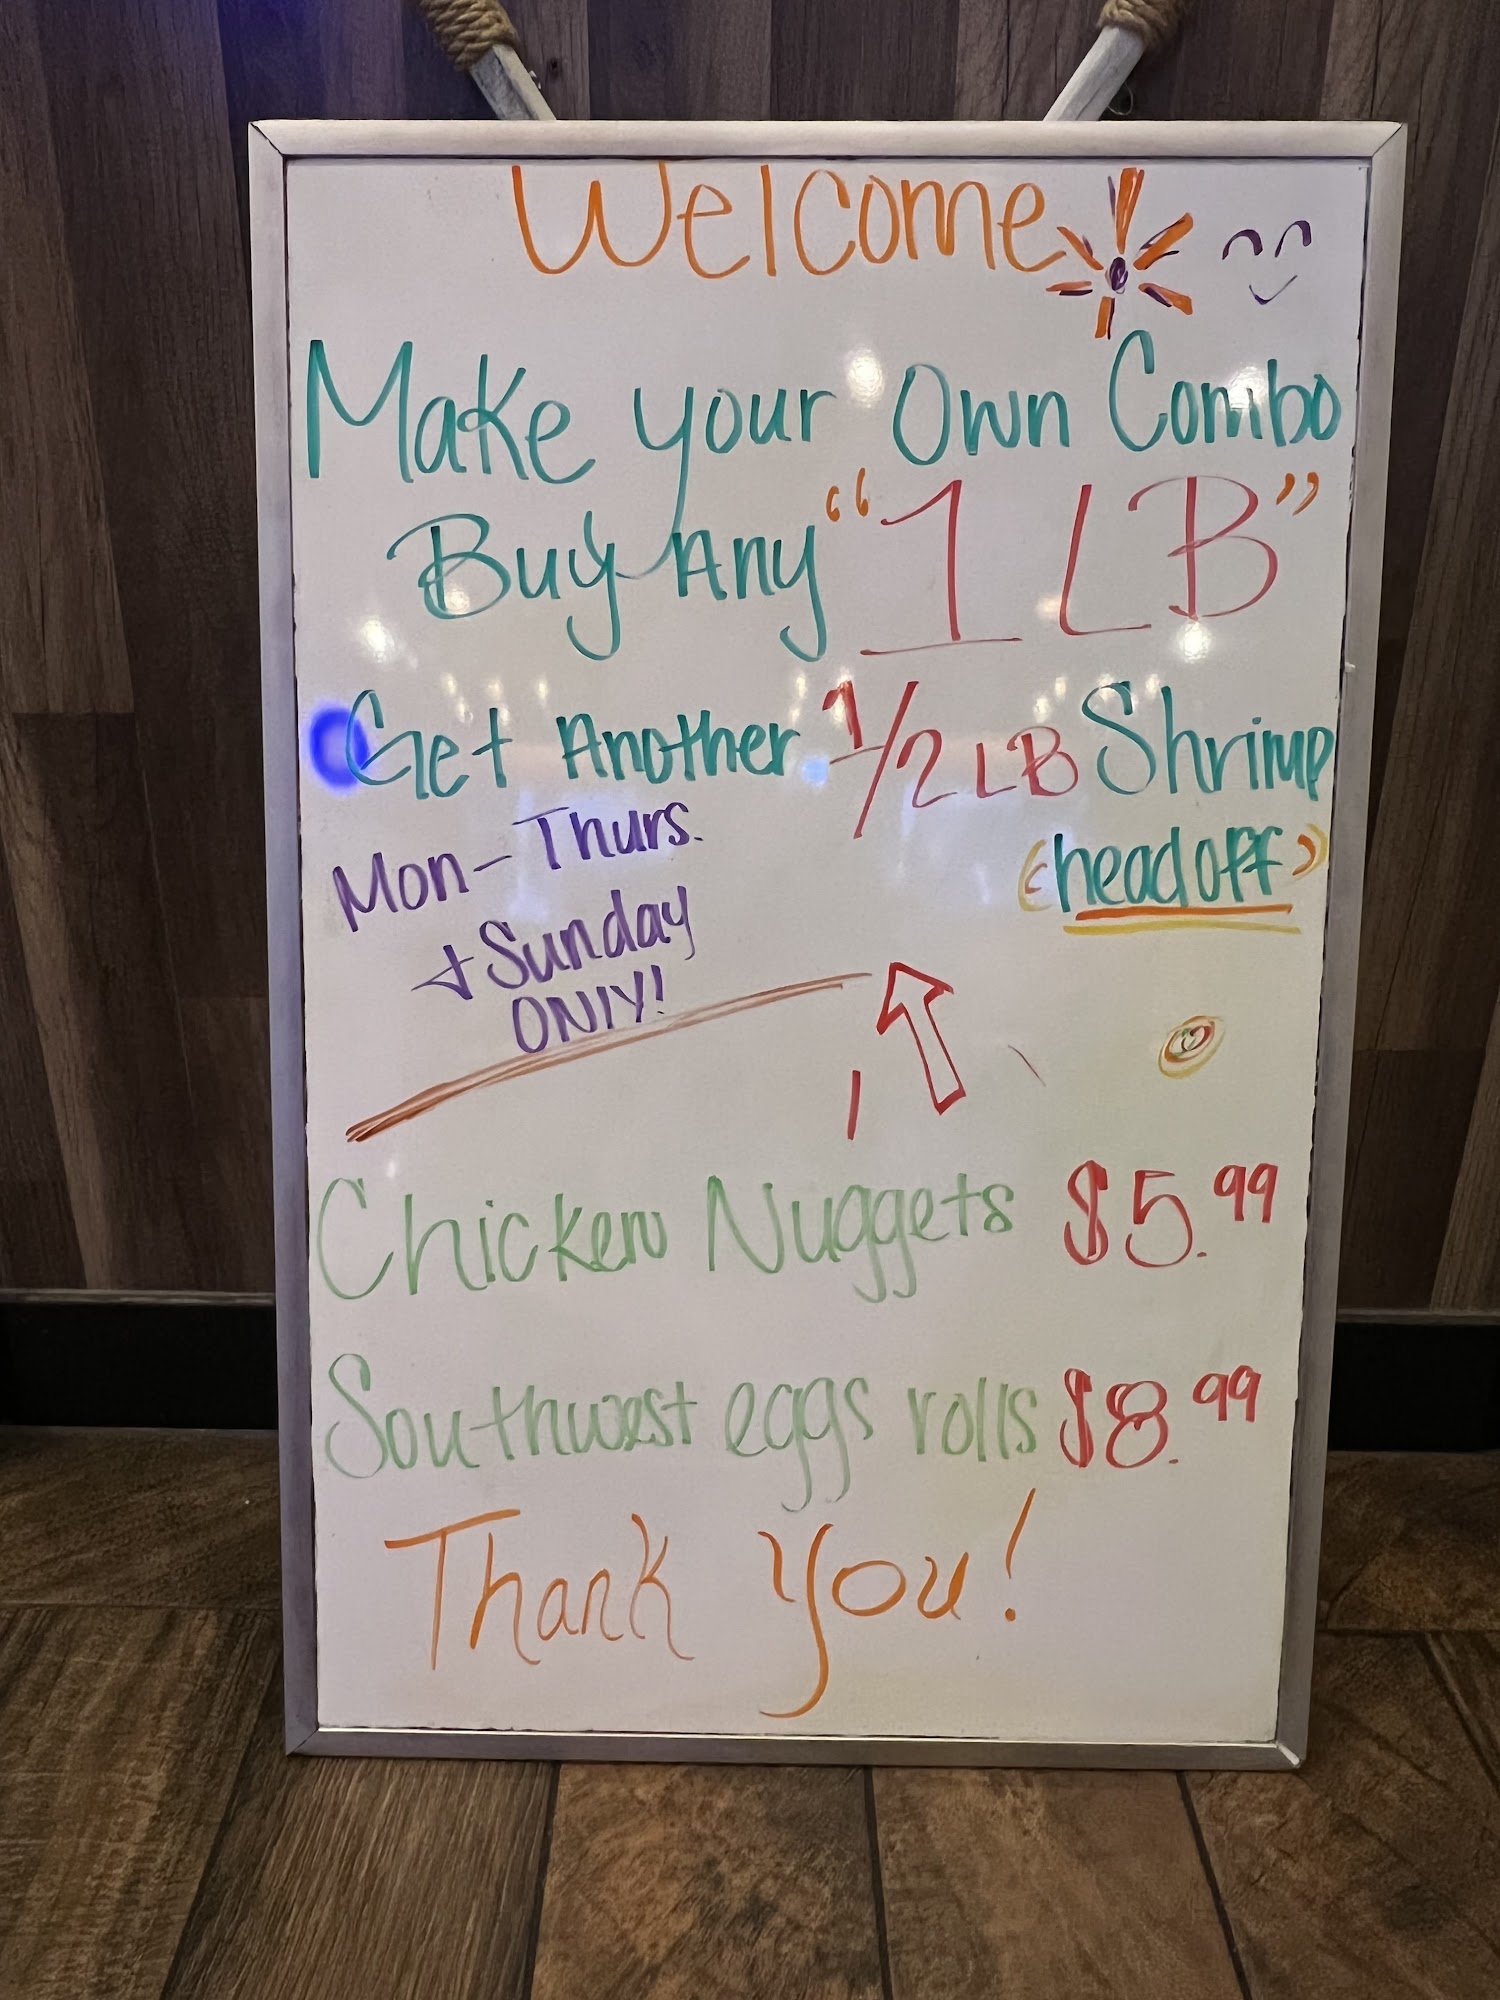 Welcome
Make your Own Combo
Buy Any “1 LB”
Get Another 1/2 LB Shrimp
(headoff)
Mon-Thurs.
+ Sunday
ONlY!
Chicken Nuggets $5.99
Southwest eggs rolls $8.99
Thank You!